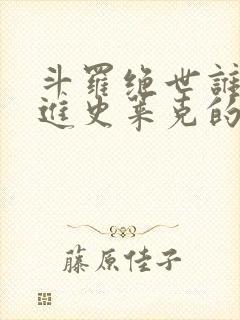 斗羅绝世誰
進史莱克的
藤原佳子